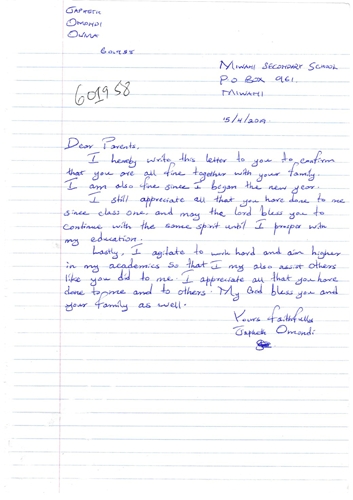 Japheth
Omondi
Owuor
601958
601958
Miwani Secondary School
P.O Box 961.
Miwani
15/4/2019.
Dear Parents,
I hereby write this letter to you to confirm
that you are all fine together with your family.
I am also fine since I began the new year.
I still appreciate all that you have done to me
since class one. and may the lord bless you to
continue with the same spirit until I prosper with
my education.
Lastly, I agitate to work hard and aim higher
in my academics so that I my also assist others
like you did to me. I appreciate all that you have
done to me and to others. My God bless you and
your family as well.
Yours faithfully
Japheth Omondi